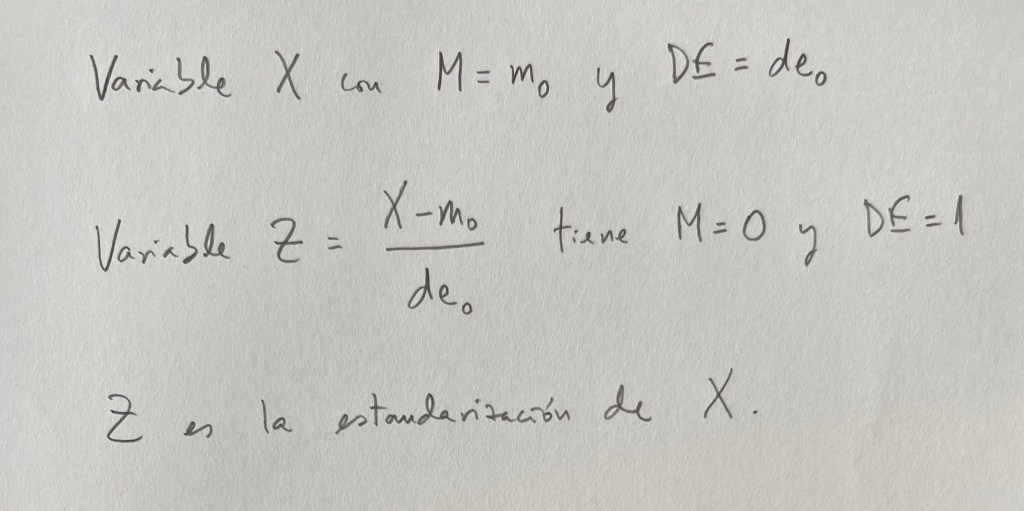 Variable X con M = m₀ y DE = de₀
Variable Z = (X - m₀) / de₀ tiene M = 0 y DE = 1
Z es la estandarización de X.